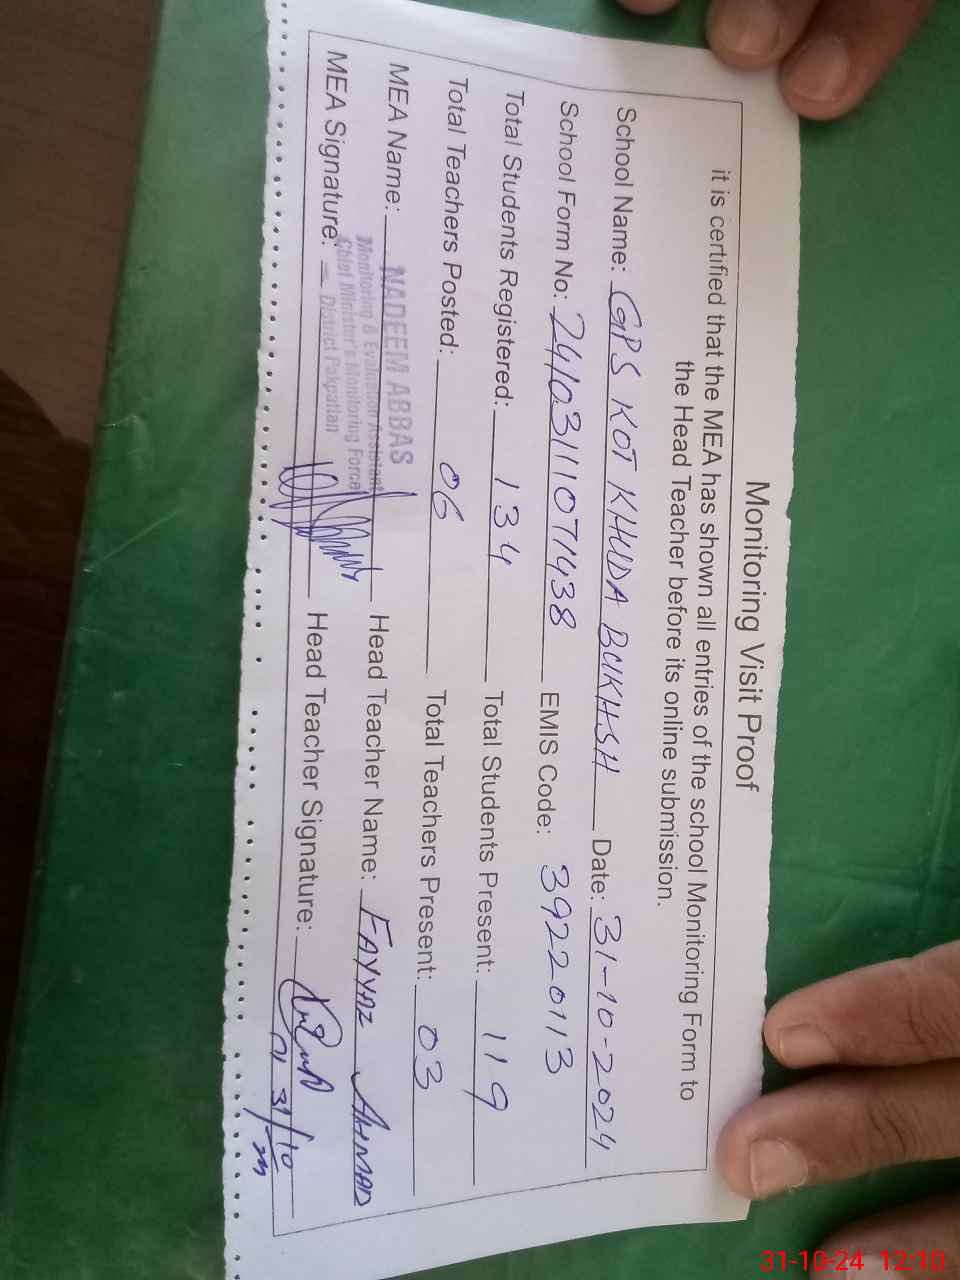 Monitoring Visit Proof
it is certified that the MEA has shown all entries of the school Monitoring Form to
the Head Teacher before its online submission.
School Name: GPS KOT KHUDA BUKHSH Date: 31-10-2024
School Form No: 241031110T1438 EMIS Code: 39220113
Total Students Registered: 134 Total Students Present: 119
Total Teachers Posted: 06 Total Teachers Present: 03
MEA Name: NADEEM ABBAS Head Teacher Name: FAYYAZ AHMAD
Monitoring & Evaluation Assistant
Chief Minister's Monitoring Force
District Pakpattan
MEA Signature: Head Teacher Signature:
31/10
31-10-24 12:10